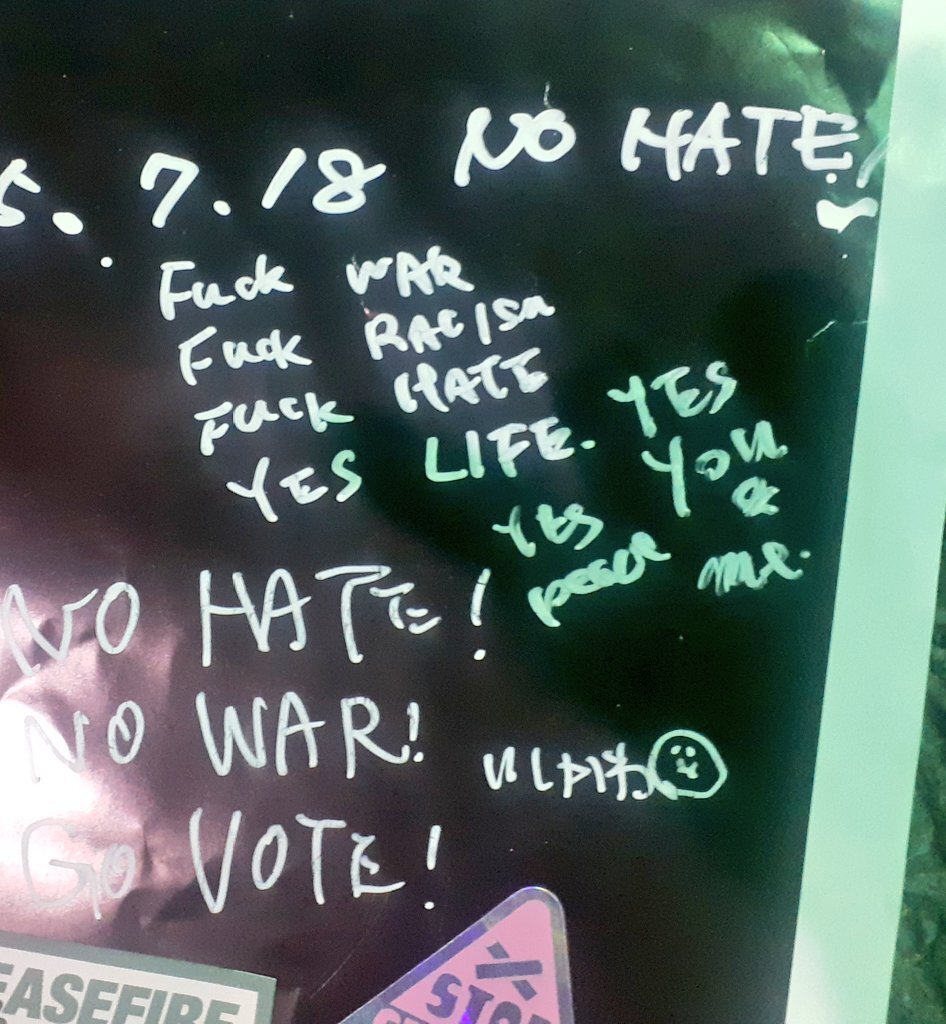 5. 7.18 NO HATE!
Fuck WAR
Fuck RACISM
FUCK HATE
YES LIFE. YES
YOU
&
me.
YES
peace
NO HATE!
NO WAR!
Go VOTE!
EASEFIRE
STOP